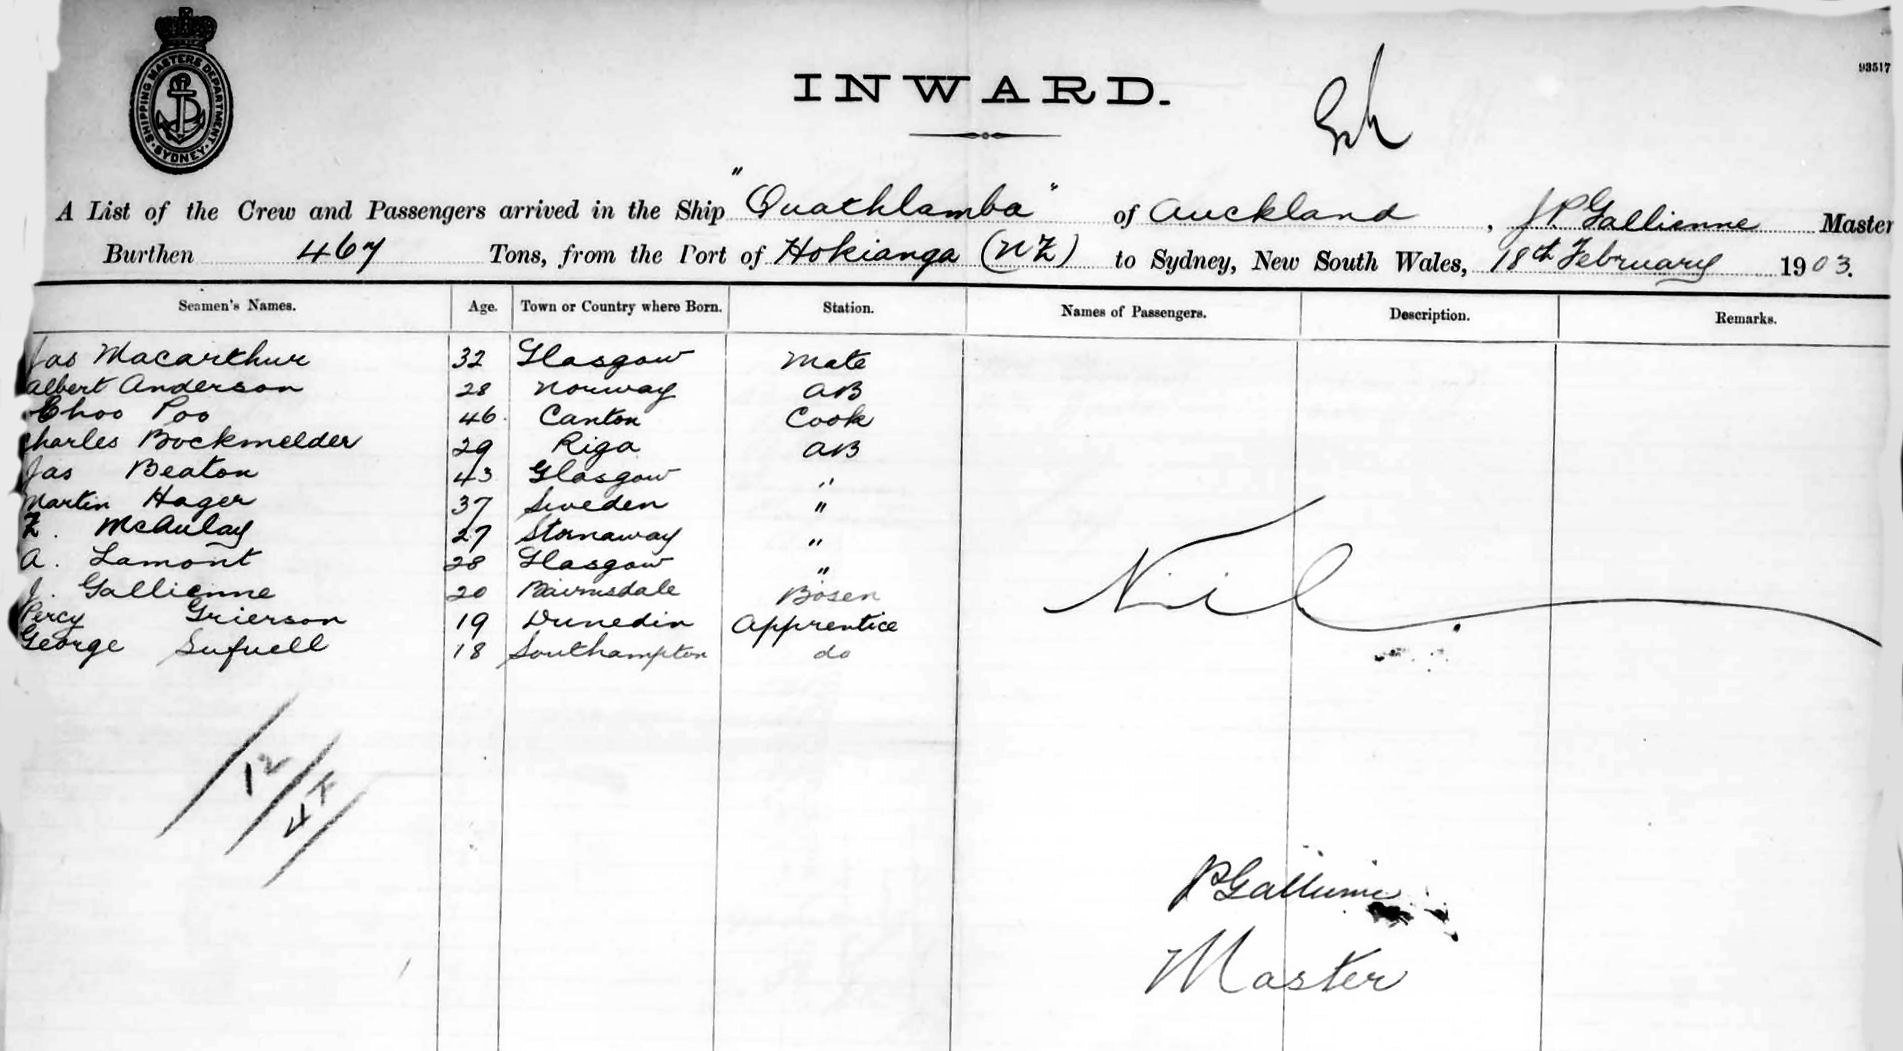 SHIPPING MASTERS DEPARTMENT
SYDNEY
93517
INWARD.
A List of the Crew and Passengers arrived in the Ship "Quathlamba" of Auckland, J P Gallienne Master
Burthen 467 Tons, from the Port of Hokianga (NZ) to Sydney, New South Wales, 18th February 1903.
Seamen's Names. Age. Town or Country where Born. Station. Names of Passengers. Description. Remarks.
Jas Macarthur 32 Glasgow Mate
Albert Anderson 28 Norway AB
Choo Poo 46 Canton Cook
Charles Bockmelder 29 Riga AB
Jas Beaton 43 Glasgow "
Martin Hager 37 Sweden "
Z. McAulay 27 Stornaway "
A. Lamont 28 Glasgow "
J. Gallienne 20 Bairnsdale Bosen
Percy Grierson 19 Dunedin Apprentice
George Sufuell 18 Southampton do
Nil
12
4
JP Gallienne
Master